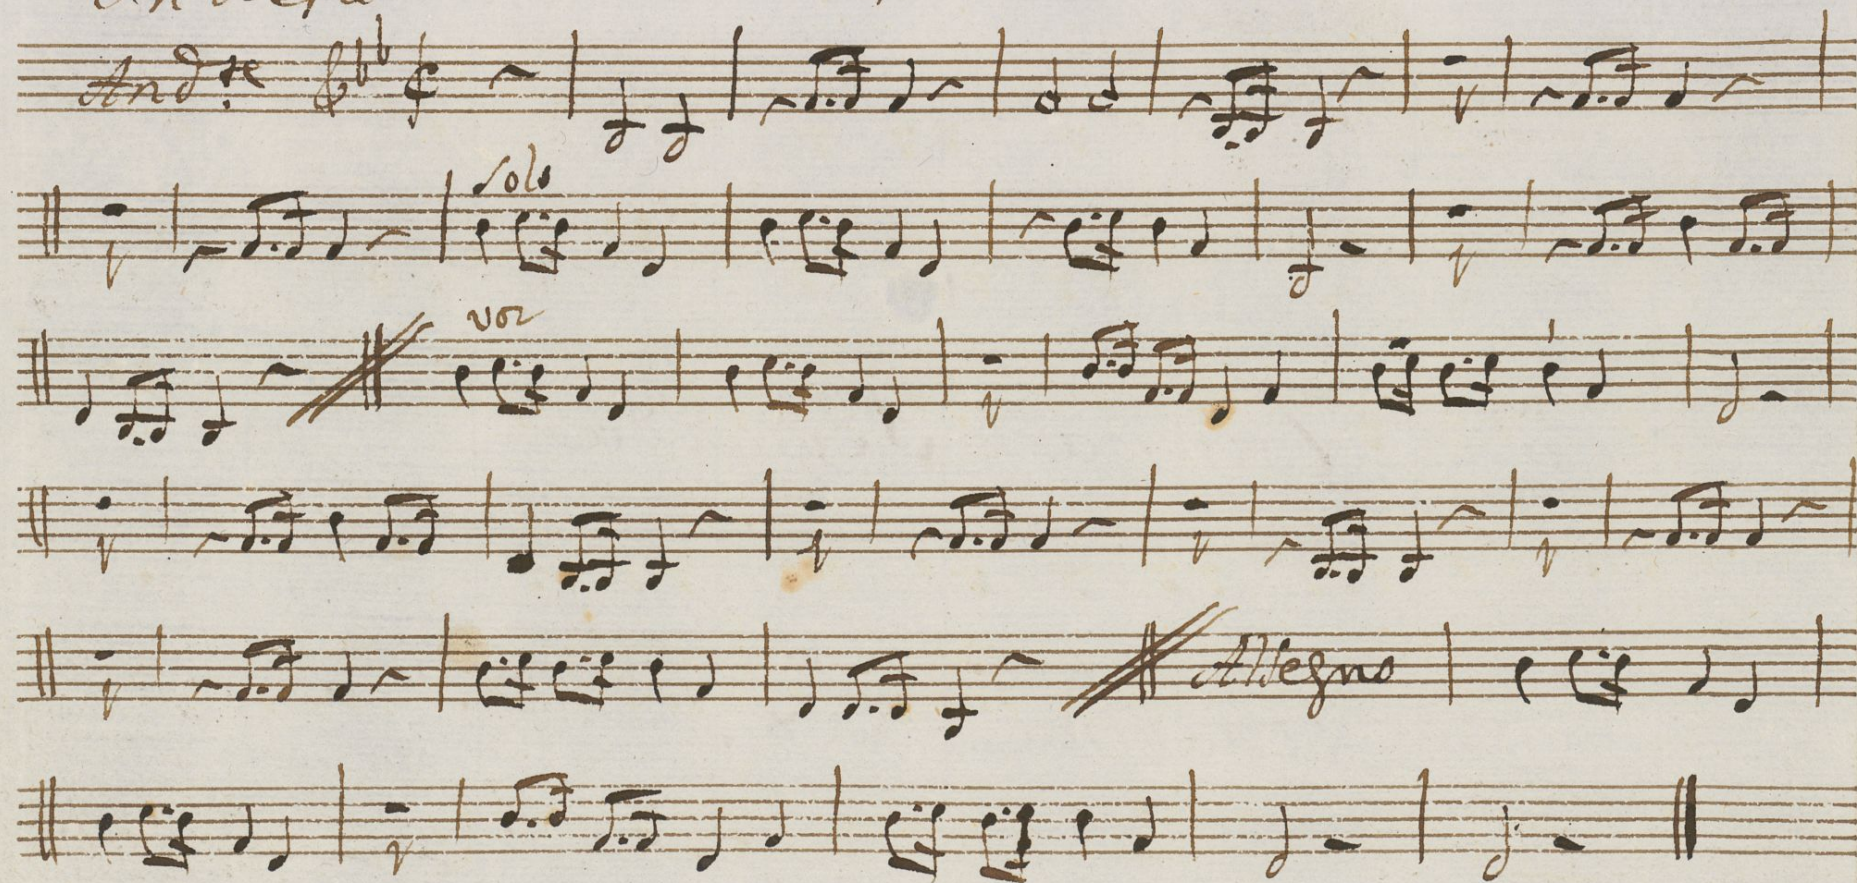 And.te
Solo
voz
Allegro